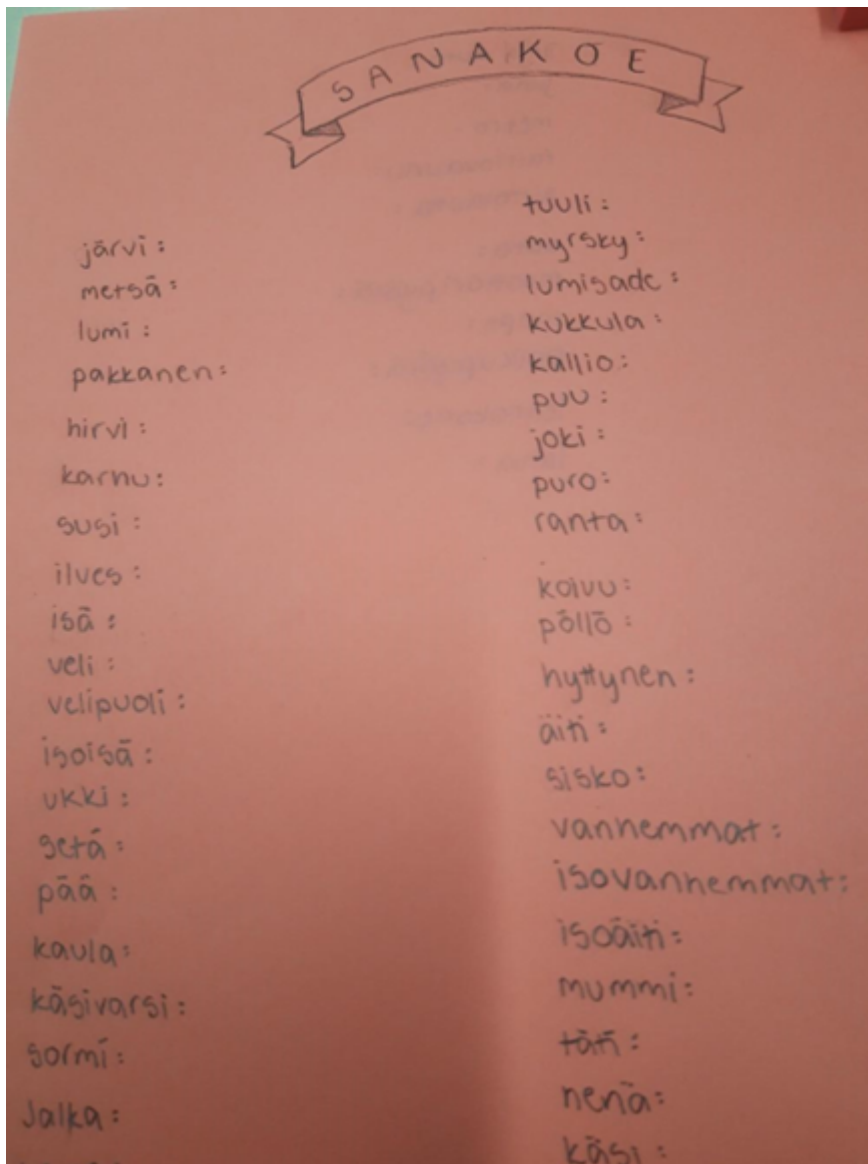 SANAKOE
järvi:
metsä:
lumi:
pakkanen:
hirvi:
karhu:
susi:
ilves:
isä:
veli:
velipuoli:
isoisä:
ukki:
setä:
pää:
kaula:
käsivarsi:
sormi:
Jalka:
tuuli:
myrsky:
lumisade:
kukkula:
kallio:
puu:
joki:
puro:
ranta:
koivu:
pöllö:
hyttynen:
äiti:
sisko:
vanhemmat:
isovanhemmat:
isoäiti:
mummi:
täti:
nenä:
käsi: